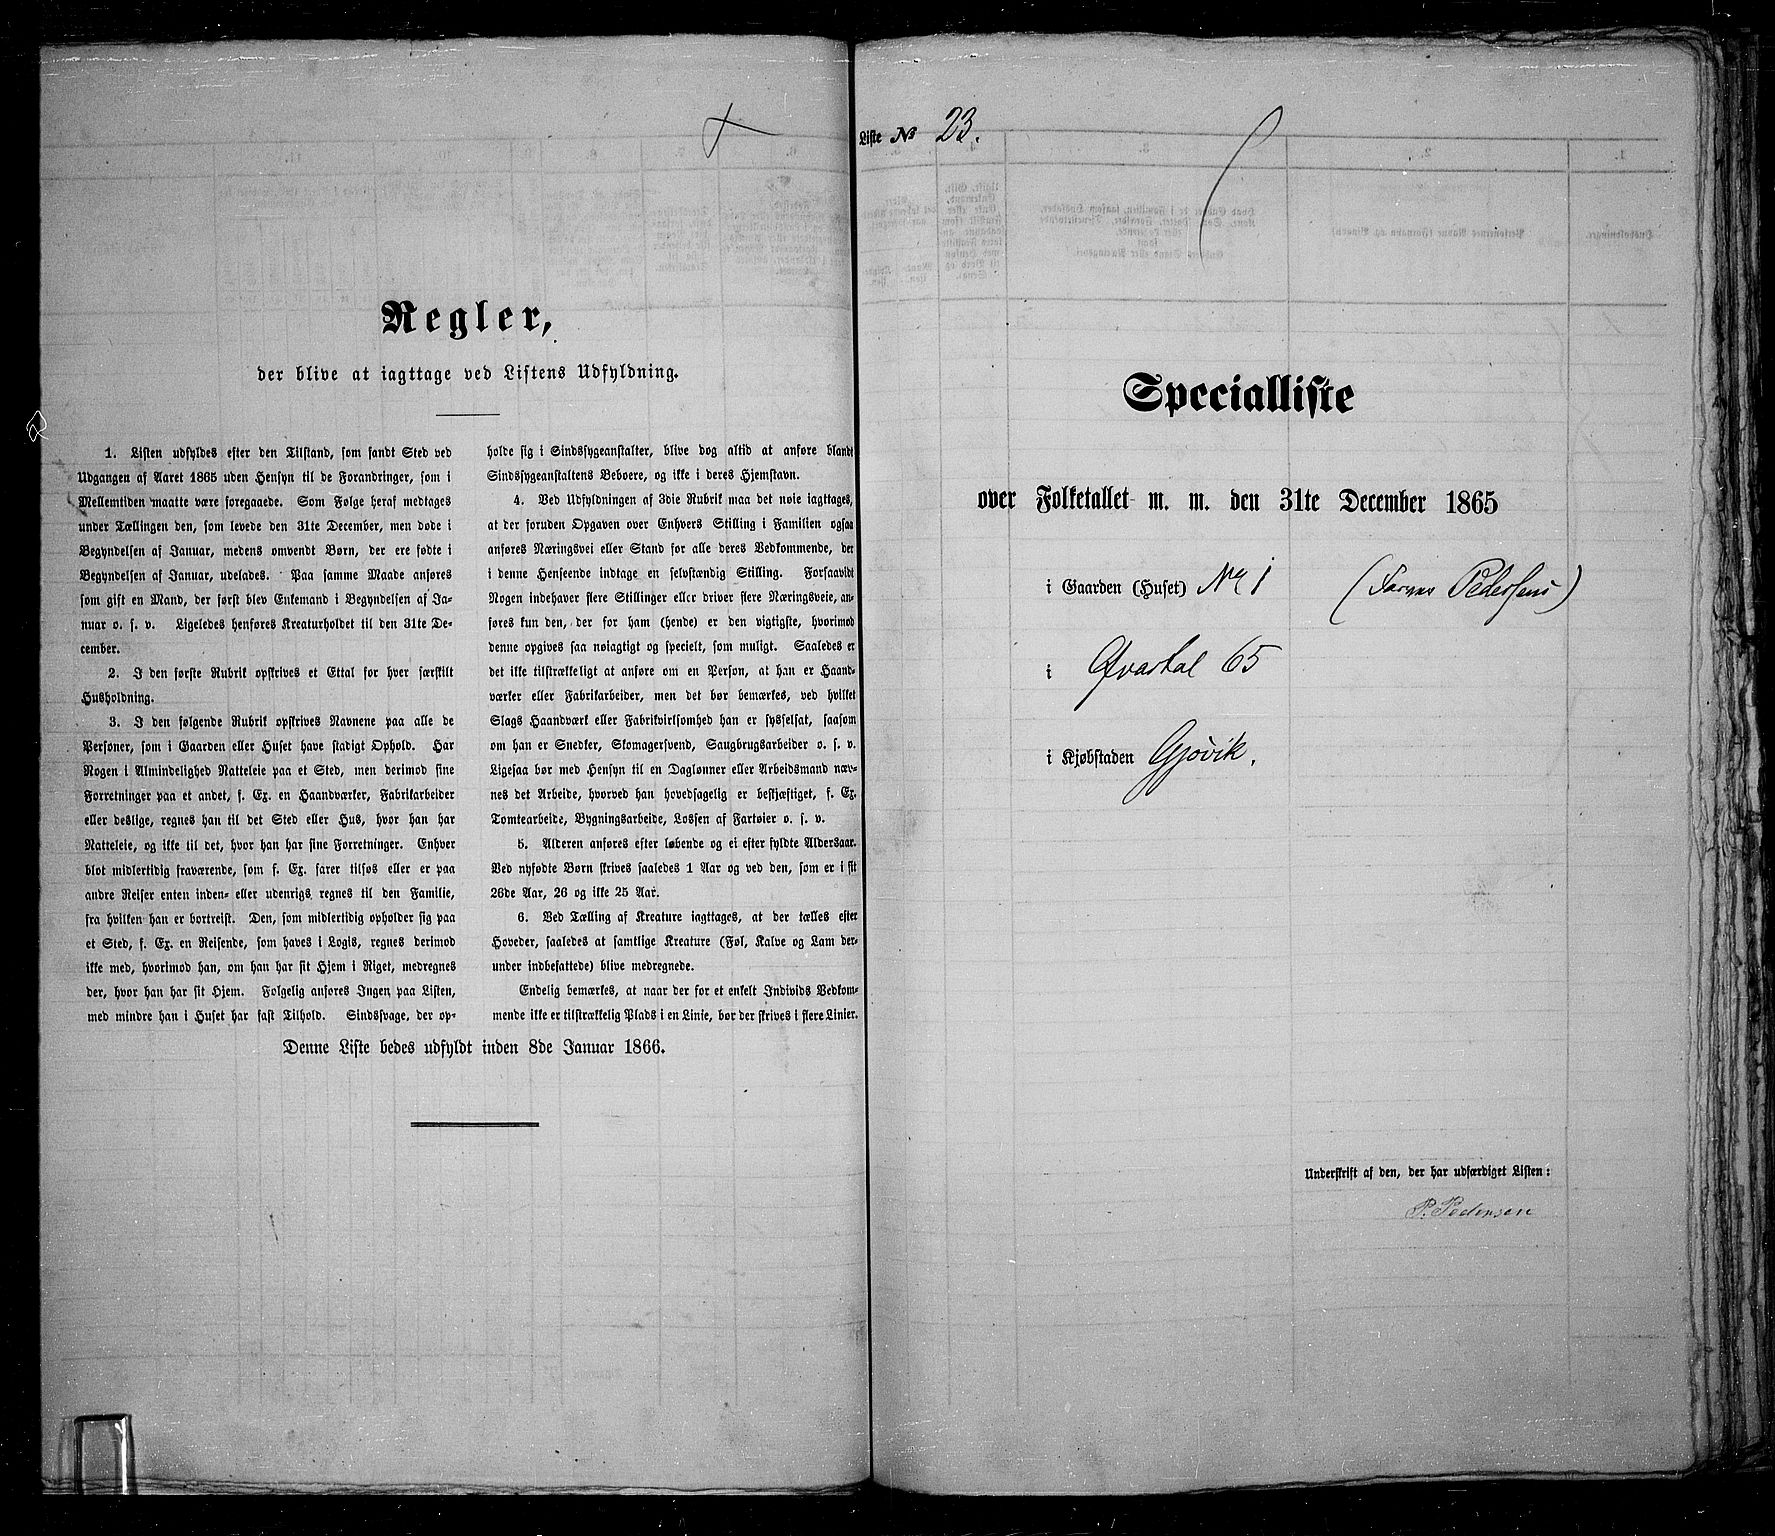 Regler,
der blive at iagttage ved Listens Udfyldning.
1. Listen udfyldes efter den Tilstand, som fandt Sted ved
Udgangen af Aaret 1865 uden Hensyn til de Forandringer, som i
Mellemtiden maatte være foregaaede. Som Følge heraf medtages
under Tællingen den, som levede den 31te December, men døde i
Begyndelsen af Januar, medens omvendt Børn, der ere fødte i
Begyndelsen af Januar, udelades. Paa samme Maade anføres
som gift en Mand, der først blev Enkemand i Begyndelsen af Ja-
nuar o. s. v. Ligeledes henføres Kreaturholdet til den 31te De-
cember.
2. I den første Rubrik opskrives et Ettal for hver særskilt
Husholdning.
3. I den følgende Rubrik opskrives Navnene paa alle de
Personer, som i Gaarden eller Huset have stadigt Ophold. Har
Nogen i Almindelighed Natteleie paa et Sted, men derimod sine
Forretninger paa et andet, f. Ex. en Haandværker, Fabrikarbeider
eller deslige, regnes han til det Sted eller Hus, hvor han har
Natteleie, og ikke til det, hvor han har sine Forretninger. Enhver
blot midlertidig fraværende, som f. Ex. farer tilsøs eller er paa
andre Reiser enten inden- eller udenrigs regnes til den Familie,
fra hvilken han er bortreist. Den, som midlertidig opholder sig paa
et Sted, f. Ex. en Reisende, som haves i Logis, regnes derimod
ikke med, hvorimod han, om han har sit Hjem i Riget, medregnes
der, hvor han har sit Hjem. Følgelig anføres Ingen paa Listen,
med mindre han i Huset har fast Tilhold. Sindssvage, der op-
holde sig i Sindssygeanstalter, blive dog altid at anføre blandt
Sindssygeanstaltens Beboere, og ikke i deres Hjemstavn.
4. Ved Udfyldningen af 3die Rubrik maa det nøie iagttages,
at der foruden Opgaven over Enhvers Stilling i Familien ogsaa
anføres Næringsvei eller Stand for alle deres Vedkommende, der
i denne Henseende indtage en selvstændig Stilling. Forsaavidt
Nogen indehaver flere Stillinger eller driver flere Næringsveie, an-
føres kun den, der for ham (hende) er den vigtigste, hvorimod
denne opgives saa nøiagtigt og specielt, som muligt. Saaledes er
det ikke tilstrækkeligt at anføre om en Person, at han er Haand-
værker eller Fabrikarbeider, men det bør bemærkes, ved hvilket
Slags Haandværk eller Fabrikvirksomhed han er sysselsat, saasom
om han er Snedker, Skomagersvend, Saugbrugsarbeider o. s. v.
Ligesaa bør med Hensyn til en Daglønner eller Arbeidsmand næv-
nes det Arbeide, hvorved han hovedsagelig er beskjæftiget, f. Ex.
Tomtearbeide, Bygningsarbeide, Lossen af Fartøier o. s. v.
5. Alderen anføres efter løbende og ei efter fyldte Aldersaar.
Ved nyfødte Børn skrives saaledes 1 Aar og ved den, som er i sit
26de Aar, 26 og ikke 25 Aar.
6. Ved Tælling af Kreature iagttages, at der tælles efter
Hoveder, saaledes at samtlige Kreature (Føl, Kalve og Lam der-
under indbefattede) blive medregnede.
Endelig bemærkes, at naar der for et enkelt Individs Vedkom-
mende ikke er tilstrækkelig Plads i en Linie, bør der skrives i flere Linier.
Denne Liste bedes udfyldt inden 8de Januar 1866.
Liste No 23.
Specialliste
over Folketallet m. m. den 31te December 1865
i Gaarden (Huset) No 1 (Pedersens)
i Qvartal 65
i Kjøbstaden Gjøvik.
Underskrift af den, der har udfærdiget Listen:
P. Pedersen